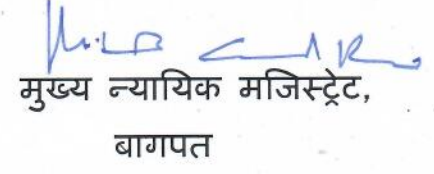 मुख्य न्यायिक मजिस्ट्रेट,
बागपत